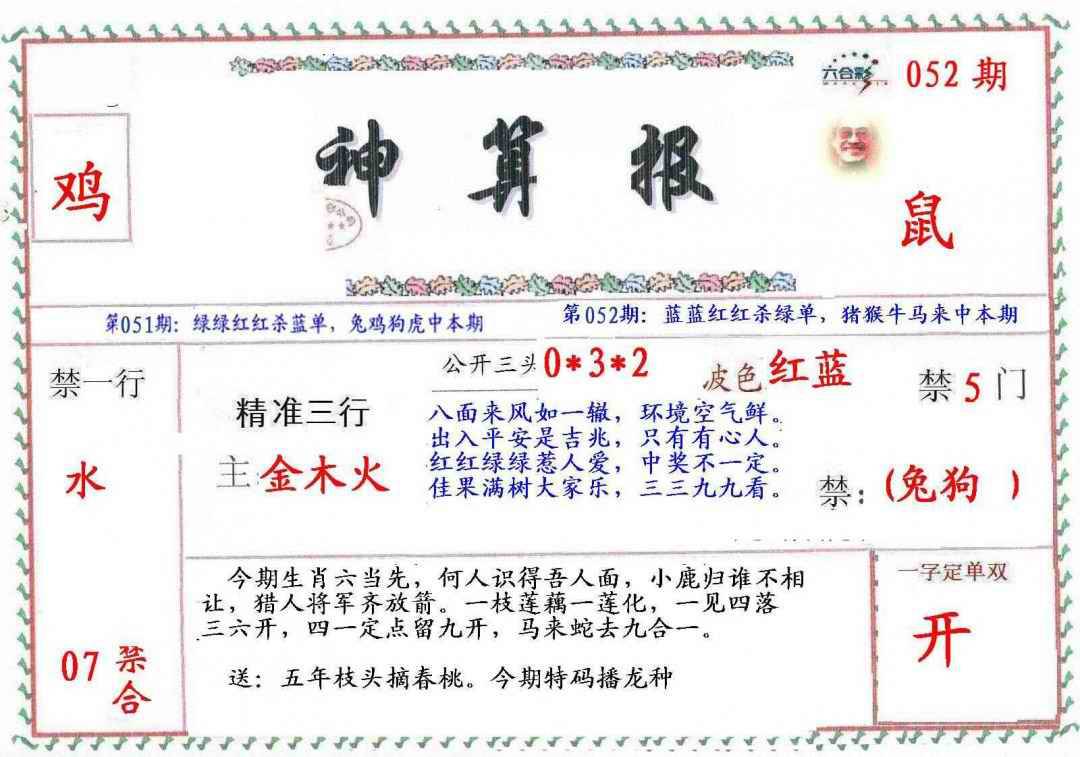 六合彩
052期
鸡
神算报
鼠
第051期：绿绿红红杀蓝单，兔鸡狗虎中本期
第052期：蓝蓝红红杀绿单，猪猴牛马来中本期
禁一行
水
07禁合
精准三行
主:金木火
公开三头0*3*2
波色红蓝
八面来风如一辙，环境空气鲜。
出入平安是吉兆，只有有心人。
红红绿绿惹人爱，中奖不一定。
佳果满树大家乐，三三九九看。
禁5门
禁：(兔狗 )
今期生肖六当先，何人识得吾人面，小鹿归谁不相
让，猎人将军齐放箭。一枝莲藕一莲化，一见四落
三六开，四一定点留九开，马来蛇去九合一。
送：五年枝头摘春桃。今期特码播龙种
一字定单双
开